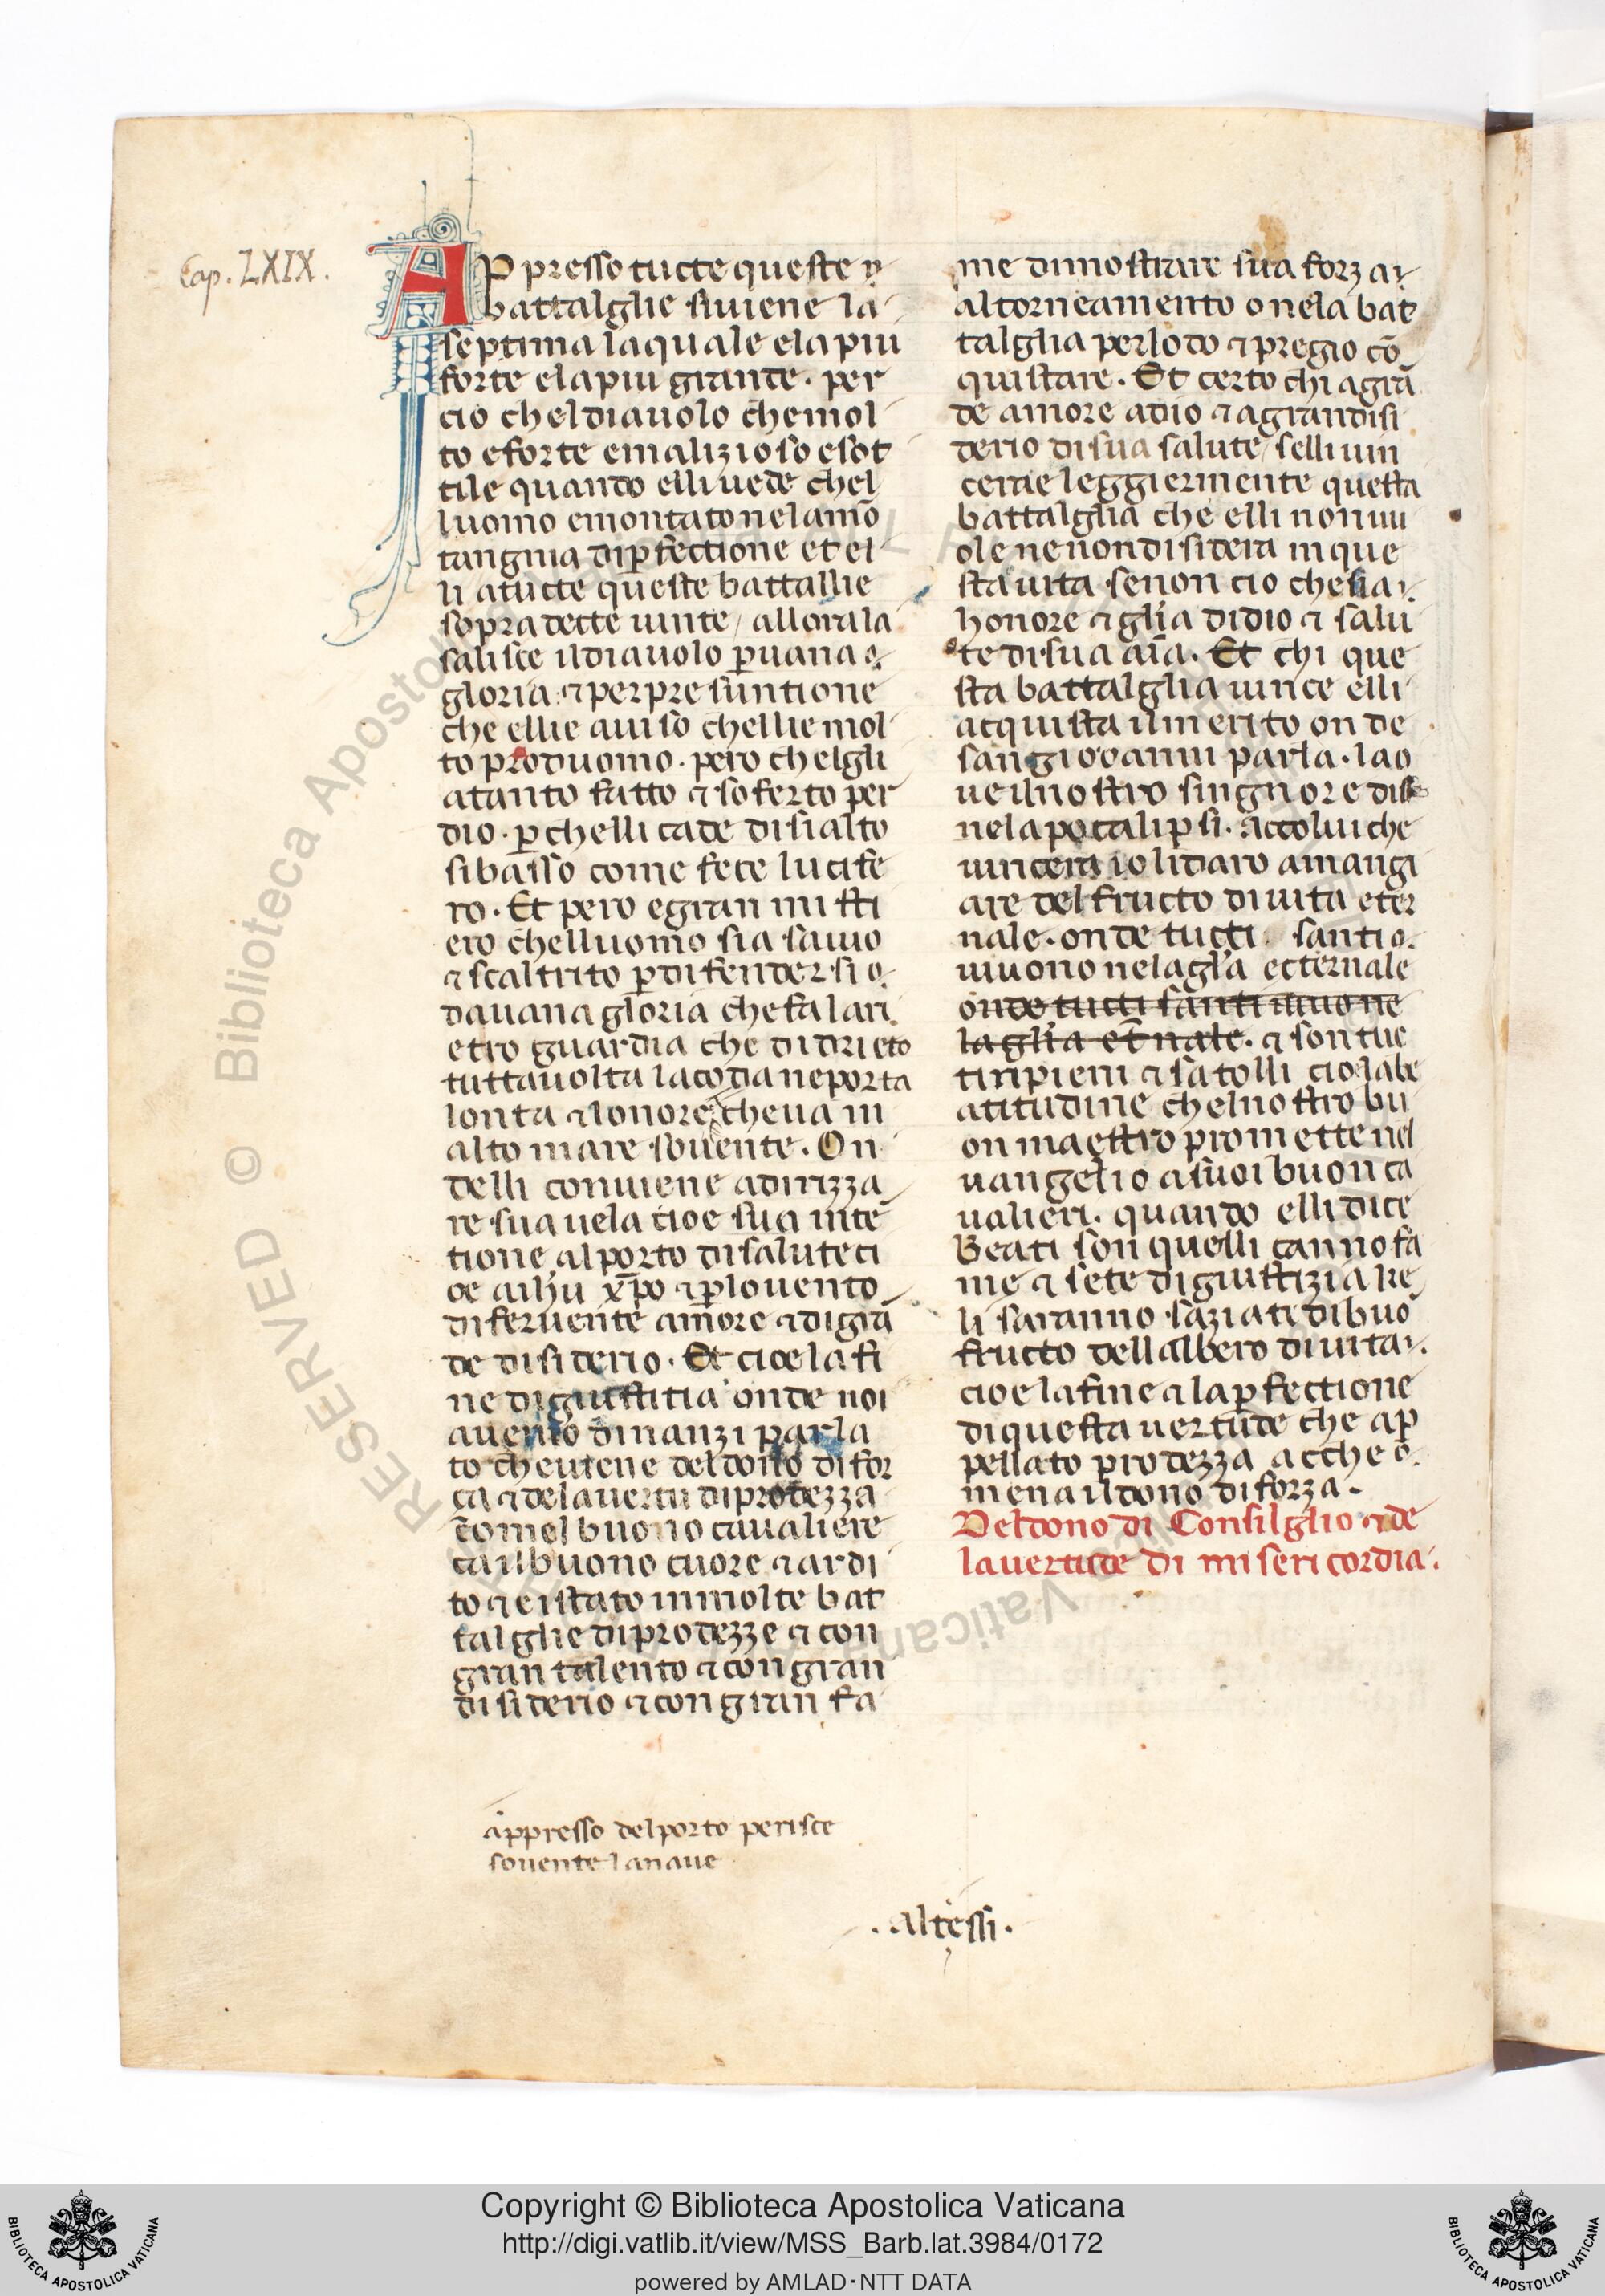 Cap. LXIX.
AP presso tucte queste y
battalglie siuiene la
septima laquale elapiu
forte elapiu grande. per
cio cheldiauolo chemol
to eforte emalizioso esot
tile quando elliuede chel
luomo emontatonelamō
tangnia dip̄fectione et el
li atucte queste battallie
sopradecte uinte / allorala
salisce ildiauolo p̄uana
gloria ⁊ perpresuntione
che ellie auiso chellie mol
to produomo. pero chelgli
atanto fatto ⁊ soferto per
dio. p̄chelli cade disialto
sibasso come fece lucife
ro. Et pero egran misti
ero chelluomo sia sauio
⁊ scaltrito p̄difendersi
dauanagloria chefalari
etro guardia che didrieto
tuttauolta lacodaneporta
lonta ⁊ lonore cheua in
alto mare souente. On
delli conuiene adirizza
re sua uela cioe sua inte
tione alporto disaluteci
oe aihu xp̄o ⁊ p̄louento
diferuente amore ⁊ digrā
de disiderio. Et cioelafi
ne digiustitia onde noi
auemo dinanzi parla
to cheuiene deldono difor
ça ⁊ delauertu diprodezza
comel buono caualiere
cailbuono cuore ⁊ ardi
to ⁊ eistato inmolte bat
talglie diprodezze ⁊ con
gran talento ⁊ congran
disiderio ⁊ congran fa
me dimostrare sua forza
altorneamento onela bat
talglia perlodo ⁊ pregio cō
quistare. Et certo chi agrā
de amore adio ⁊ agrandisi
derio disua salute / selli uin
cerae leggiermente questa
battalglia che elli nonuu
ole nenondisidera inque
stauita senon cio chesia
honore ⁊ gl̄ia didio ⁊ salu
tedisua aīa. Et chi que
sta battalglia uince elli
acquista ilmerito onde
sangiouanni parla. lao
ueilnostro singnore dis
nelapocalipsi. Accolui che
uincera iolidaro amangi
are delfructo diuita eter
nale. onde tucti santi
uiuono nelagl̄a ecternale
onde tucti santi uiuo ne
lagl̄ia et̄nale. ⁊ son tue
tiripieni ⁊ satolli ciolabe
atitudine chelnostro bu
on maestro promette nel
uangelio asuoi buon ca
ualieri. quando elli dice
Beati son quelli cannofa
me ⁊ sete digiustizia ke
li saranno saziati dibuō
fructo dellalbero diuita.
cioe lafine ⁊ lap̄fectione
diquesta uertude che ap
pellato prodezza acche
mena ildono diforza.
Deldono di Consilglio ⁊ de
lauertude di misericordia.
appresso delporto perisce
souente lanaue
. altessi.
Copyright © Biblioteca Apostolica Vaticana
http://digi.vatlib.it/view/MSS_Barb.lat.3984/0172
powered by AMLAD·NTT DATA